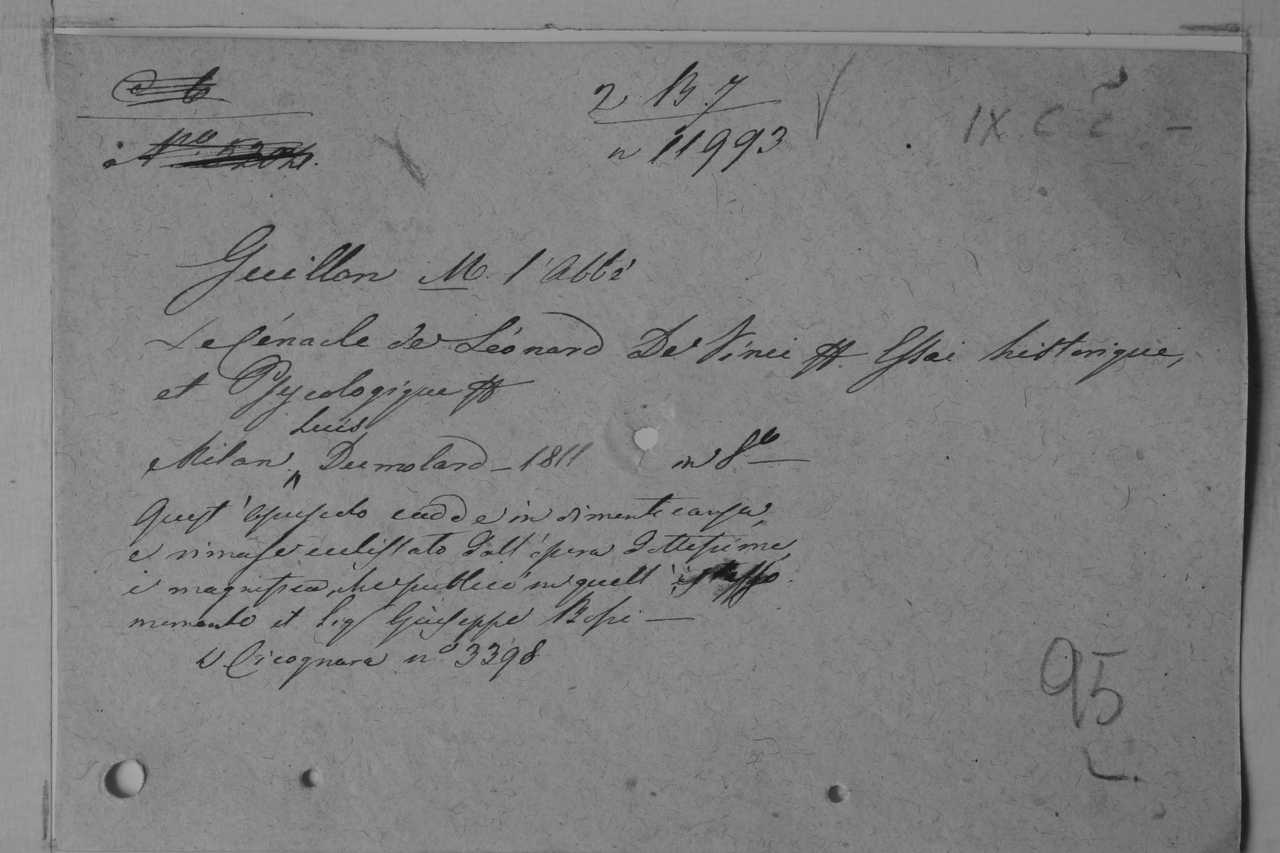 2 B. 7
n 11993
IX C
Guillon M. l'Abbé
Le Cénacle de Léonard De Vinci # Essai historique,
et Psycologique #
Luis
Milan, Dumolard - 1811 in 8º
Quest' opuscolo cadde in dimenticanza,
e rimase eclissato dall' opera dottissima,
e magnifica, che publicò in quell' istesso
momento il Sig Giuseppe Bossi —
V Cicognara nº 3398
95